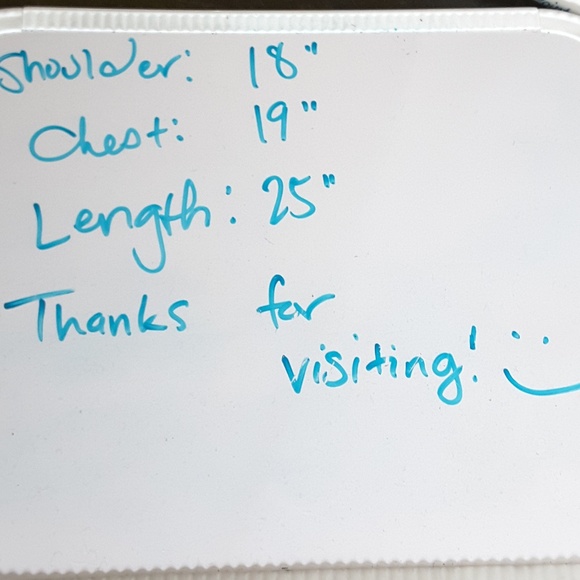 Shoulder: 18"
Chest: 19"
Length: 25"
Thanks for
visiting!